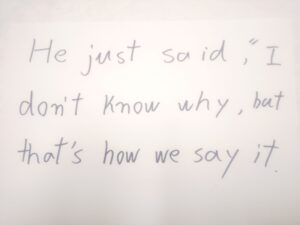 He just said, "I
don't know why, but
that's how we say it.